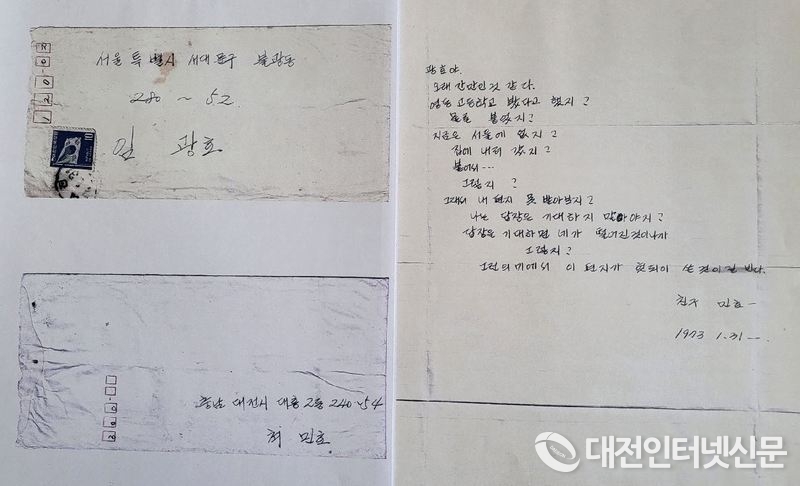 서울 특별시 서대문구 불광동
280 ~ 52
임 광호
120-02
10
충남 대전시 대흥2동 240-54
허 민호
300
광호야.
오래간만인것 같다.
영동 고등학교 봤다고 했지?
물론 붙었지?
지금은 서울에 없지?
집에 내려 갔지?
붙어서…
그렇지?
그래서 내 편지 못 받아보지?
나는 답장도 기대하지 말아야지?
답장을 기대하면 네가 떨어진것이니까
그렇지?
그런의미에서 이 편지가 헛되이 쓴것이길 빈다.
친구 민호 —
1973 1.31 —
대전인터넷신문